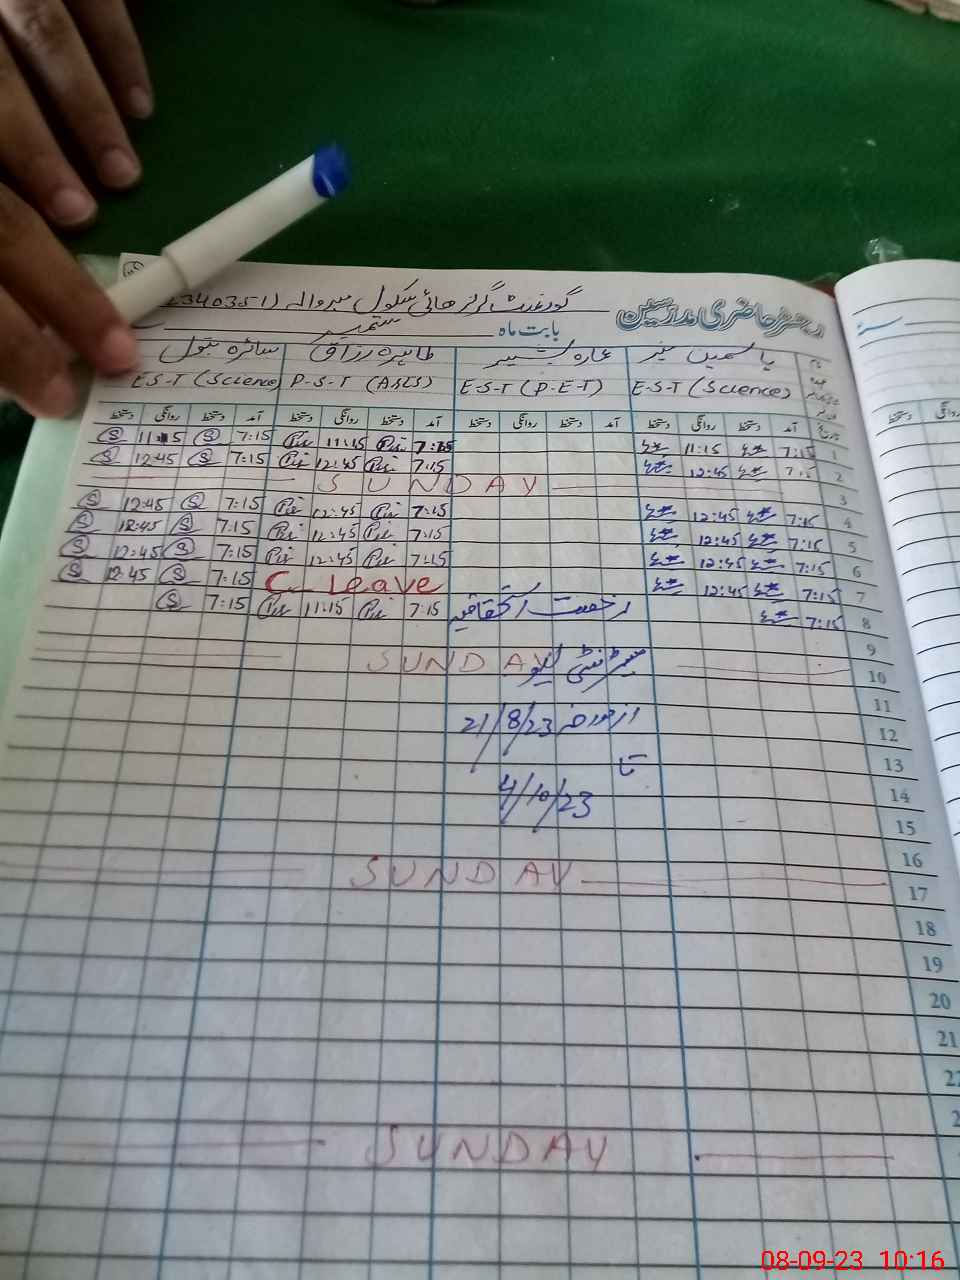 گورنمنٹ گرلز ہائی سکول
دفتر حاضری مدرسین بابت ماہ ستمبر
یاسمین عمارہ بشیر طاہرہ رزاق سائرہ بتول
E.S.T (Science) E.S.T (P.E.T) P.S.T (Arts) E.S.T (Science)
تاریخ آمد دستخط روانگی دستخط آمد دستخط روانگی دستخط آمد دستخط روانگی دستخط آمد دستخط روانگی دستخط
1 7:15 11:15 7:15 11:15 7:15 11:15
2 7:15 12:45 7:15 12:45 7:15 12:45
3 SUNDAY
4 7:15 12:45 7:15 12:45 7:15 12:45
5 7:15 12:45 7:15 12:45 7:15 12:45
6 7:15 12:45 7:15 12:45 7:15 12:45
7 7:15 12:45 C Leave 7:15 12:45
8 7:15 رخصت استحقاقیہ 7:15 11:15 7:15
9
10 میٹرنٹی لیو SUNDAY
11
12 از مورخہ 21/8/23
13 تا
14 4/10/23
15
16
17 SUNDAY
18
19
20
21
22
SUNDAY
08-09-23 10:16